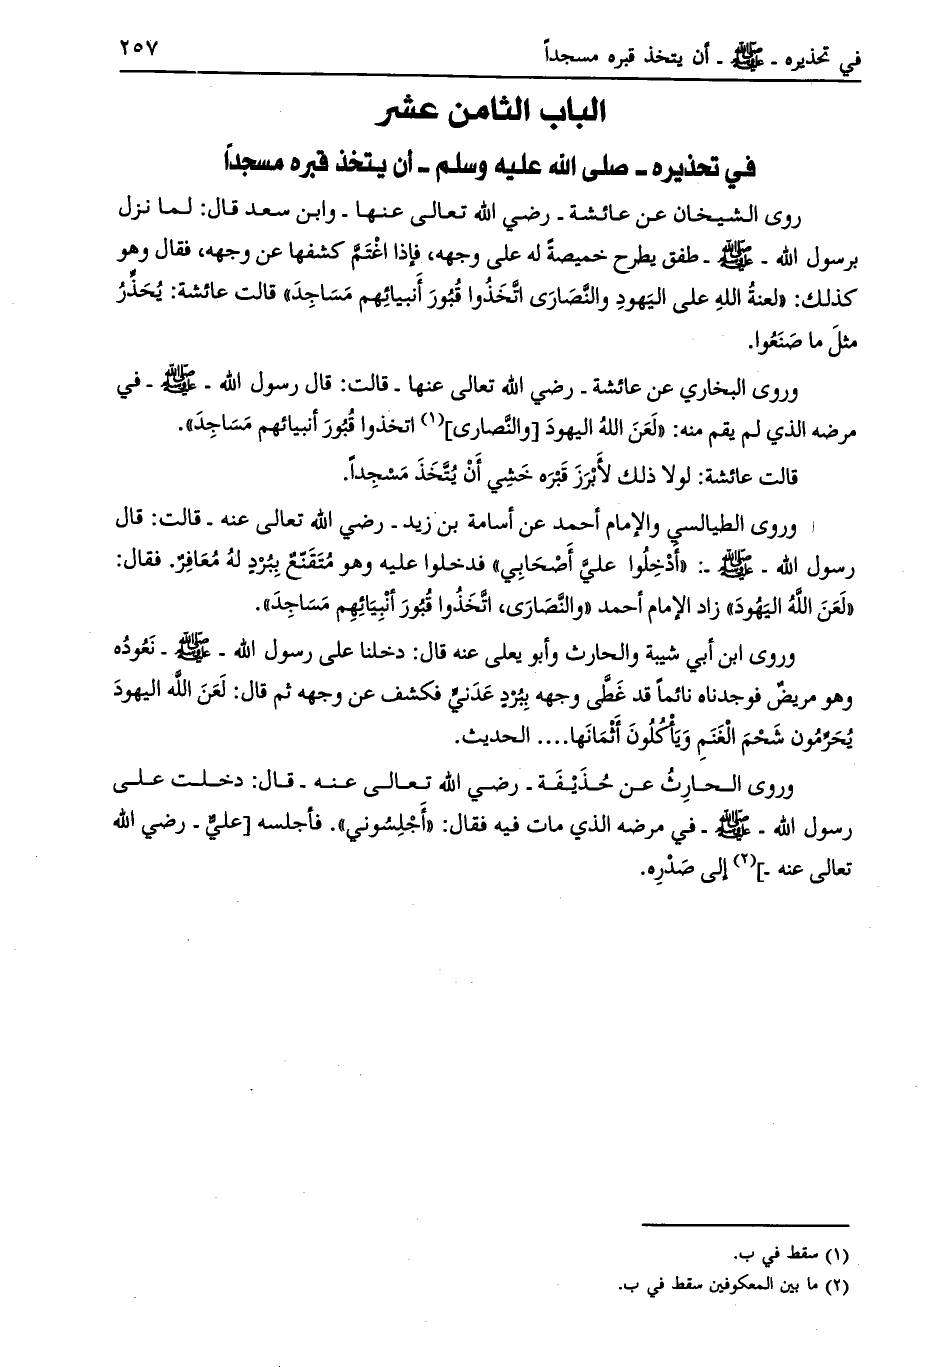 في تحذيره ـ ﷺ ـ أن يتخذ قبره مسجداً ٢٥٧
الباب الثامن عشر
في تحذيره ـ صلى الله عليه وسلم ـ أن يتخذ قبره مسجداً
روى الشيخان عن عائشة ـ رضي الله تعالى عنها ـ وابن سعد قال: لما نزل
برسول الله ـ ﷺ ـ طفق يطرح خميصةً له على وجهه، فإذا اغْتَمَّ كشفها عن وجهه، فقال وهو
كذلك: «لعنةُ اللهِ على اليَهودِ والنَّصَارَى اتَّخَذُوا قُبُورَ أنبيائِهم مَسَاجِدَ» قالت عائشة: يُحَذِّرُ
مثلَ ما صَنَعُوا.
وروى البخاري عن عائشة ـ رضي الله تعالى عنها ـ قالت: قال رسول الله ـ ﷺ ـ في
مرضه الذي لم يقم منه: «لَعَنَ اللهُ اليهودَ [والنَّصارى](١) اتخذوا قُبُورَ أنبيائهم مَسَاجِدَ».
قالت عائشة: لولا ذلك لأَبْرَزَ قَبْرَه خَشِي أَنْ يُتَّخَذَ مَسْجِداً.
وروى الطيالسي والإمام أحمد عن أسامة بن زيد ـ رضي الله تعالى عنه ـ قالت: قال
رسول الله ـ ﷺ ـ: «أَدْخِلُوا عليَّ أَصْحَابِي» فدخلوا عليه وهو مُتَقَنِّعٌ بِبُرْدٍ لهُ مُعَافِرٌ. فقال:
«لَعَنَ اللَّهُ اليَهُودَ» زاد الإمام أحمد «والنَّصَارَى، اتَّخَذُوا قُبُورَ أنْبِيَائِهِم مَسَاجِدَ».
وروى ابن أبي شيبة والحارث وأبو يعلى عنه قال: دخلنا على رسول الله ـ ﷺ ـ نَعُودُه
وهو مريضٌ فوجدناه نائماً قد غَطَّى وجهه بِبُرْدٍ عَدَنيٍّ فكشف عن وجهه ثم قال: لَعَنَ اللَّه اليهودَ
يُحَرِّمُون شَحْمَ الْغَنَمِ وَيَأْكُلُونَ أَثْمَانَها.... الحديث.
وروى الحارِثُ عن حُذَيْفَة ـ رضي الله تعالى عنه ـ قال: دخلت على
رسول الله ـ ﷺ ـ في مرضه الذي مات فيه فقال: «أَجْلِسُوني». فأجلسه [عليٌّ ـ رضي الله
تعالى عنه ـ](٢) إلى صَدْرِه.
(١) سقط في ب.
(٢) ما بين المعكوفين سقط في ب.